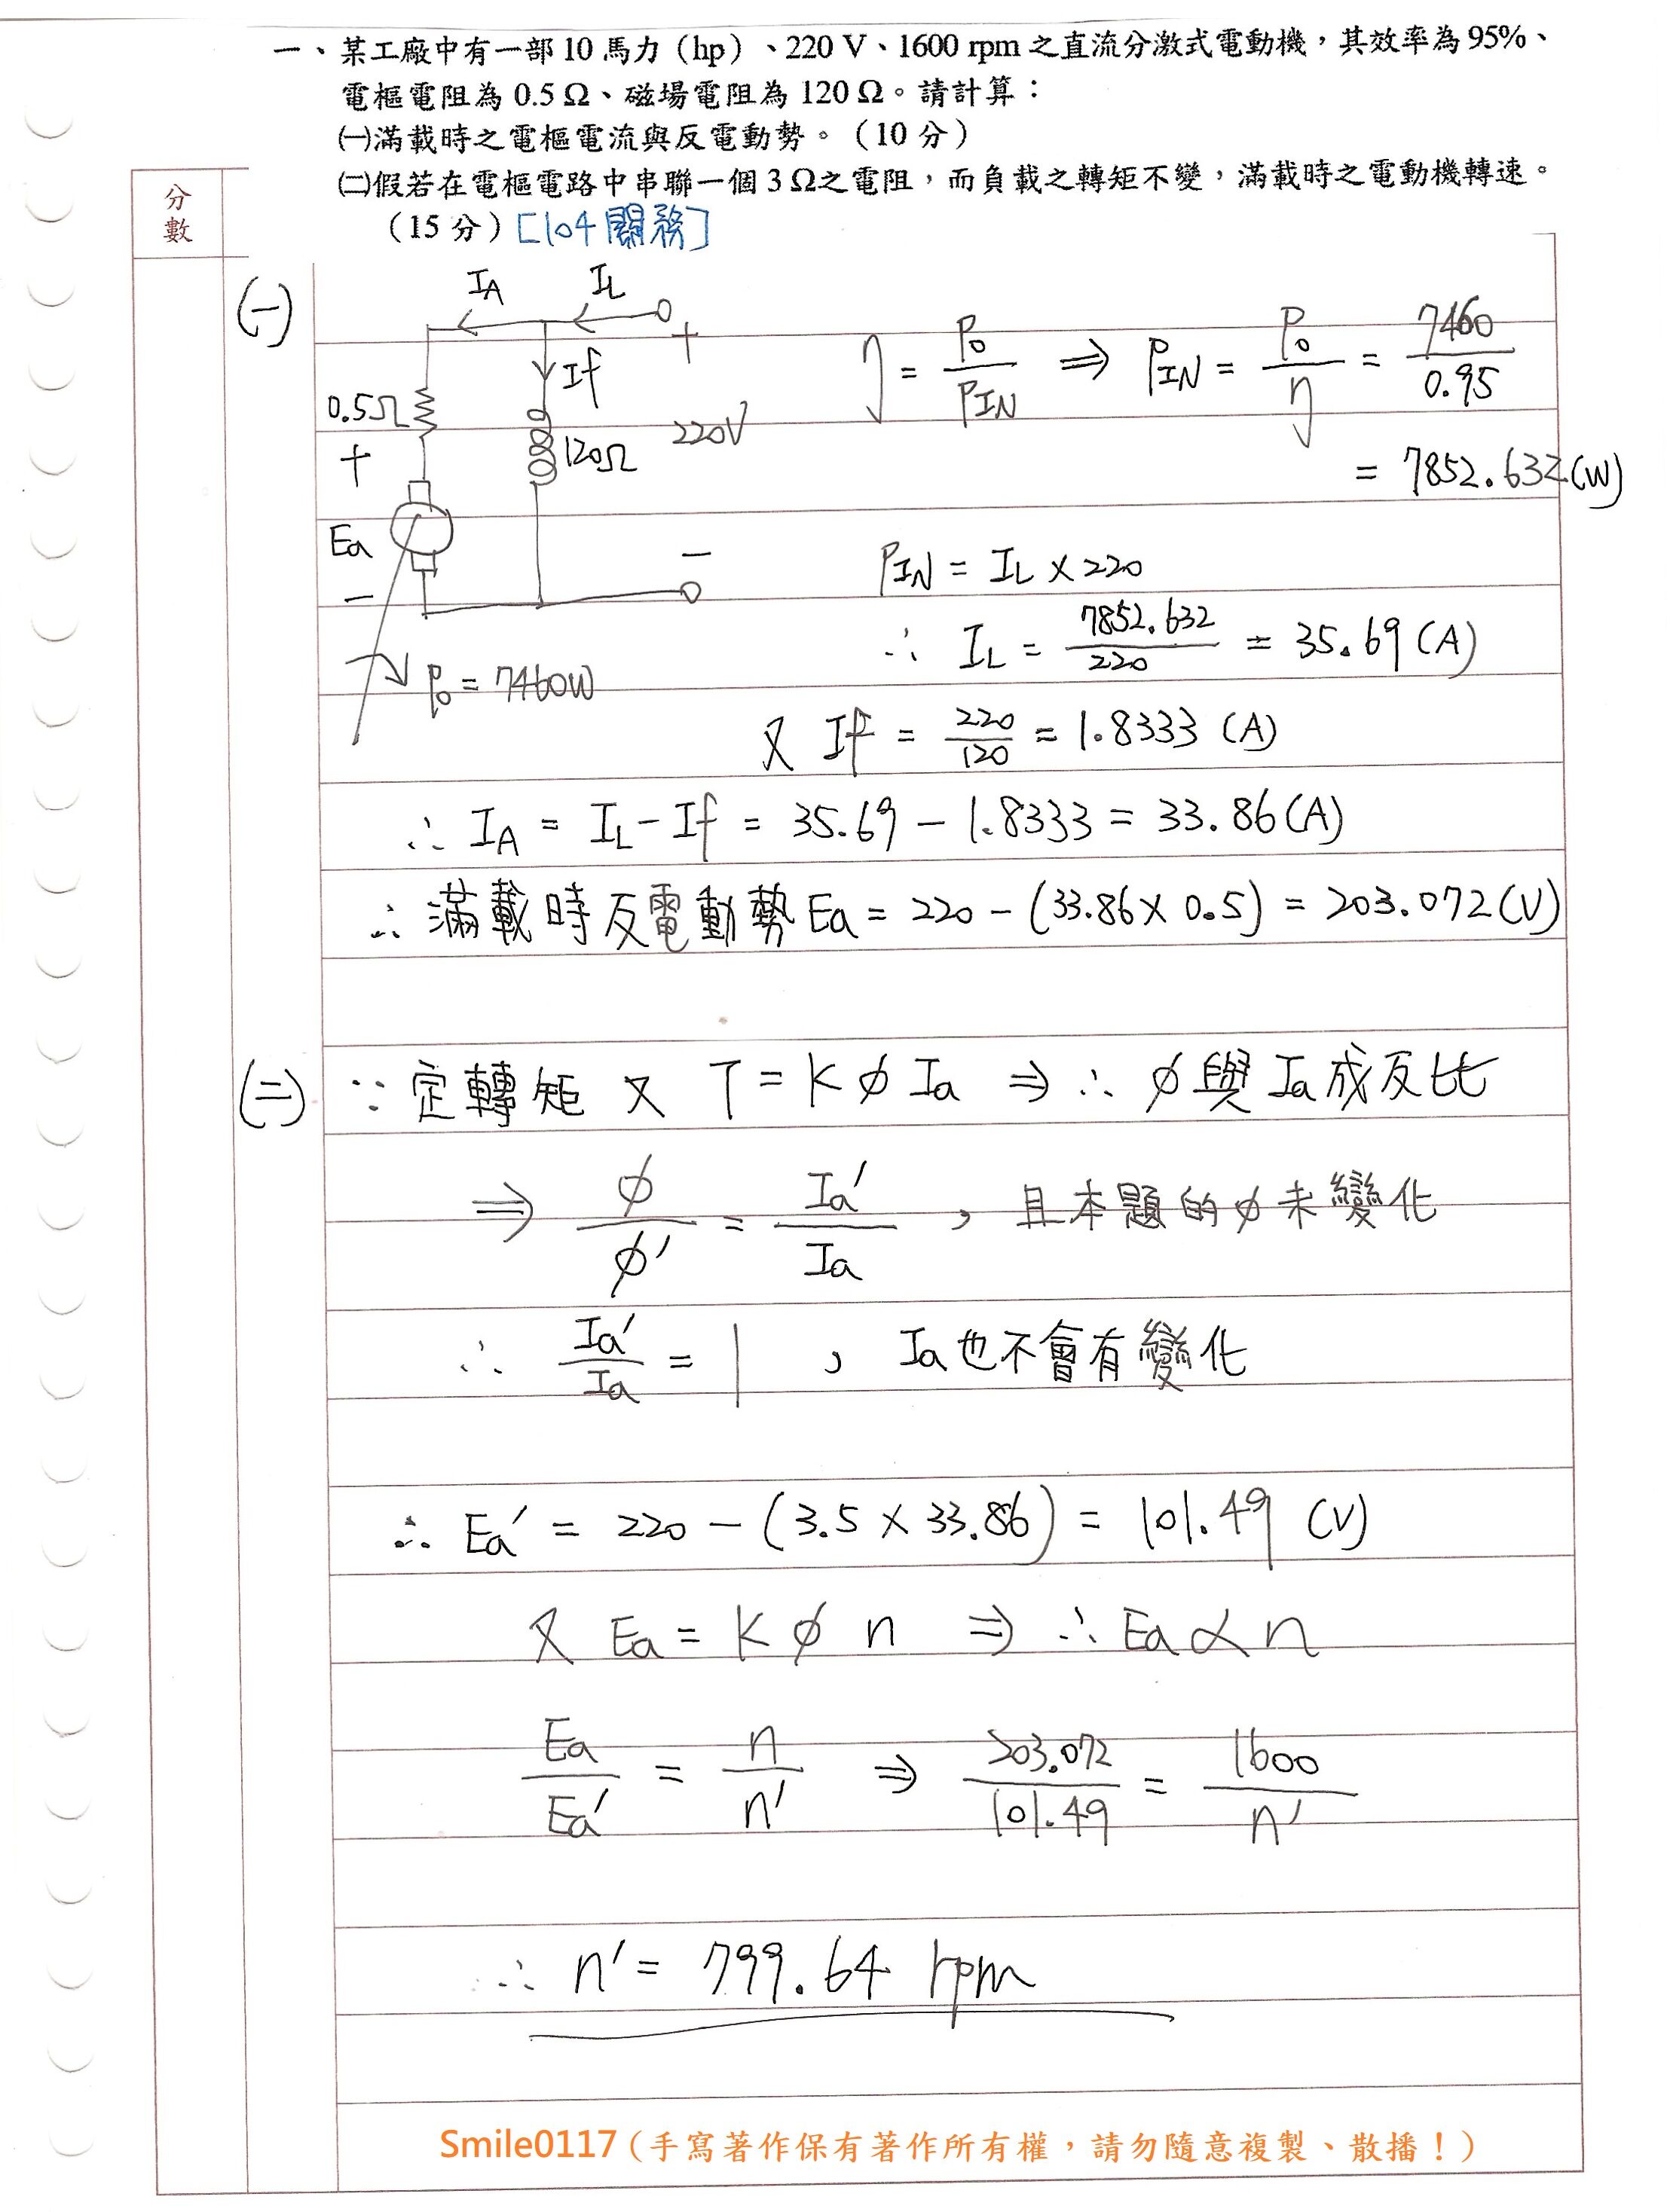 一、某工廠中有一部 10 馬力（hp）、220 V、1600 rpm 之直流分激式電動機，其效率為 95%、
電樞電阻為 0.5 Ω、磁場電阻為 120 Ω。請計算：
㈠滿載時之電樞電流與反電動勢。（10 分）
㈡假若在電樞電路中串聯一個 3 Ω之電阻，而負載之轉矩不變，滿載時之電動機轉速。
（15 分）[104 關務]
分數
(一)
IA IL
+
If
0.5Ω
+
120Ω
220V
Ea
−
−
Po = 7460W
η = Po/PIN ⇒ PIN = Po/η = 7460/0.95
= 7852.632(W)
PIN = IL × 220
∴ IL = 7852.632/220 = 35.69 (A)
又 If = 220/120 = 1.8333 (A)
∴ IA = IL − If = 35.69 − 1.8333 = 33.86(A)
∴ 滿載時反電動勢 Ea = 220 − (33.86 × 0.5) = 203.072(V)
(二) ∵ 定轉矩 又 T = K φ Ia ⇒ ∴ φ與 Ia 成反比
⇒ φ/φ' = Ia'/Ia , 且本題的φ未變化
∴ Ia'/Ia = 1 , Ia也不會有變化
∴ Ea' = 220 − (3.5 × 33.86) = 101.49 (V)
又 Ea = K φ n ⇒ ∴ Ea ∝ n
Ea/Ea' = n/n' ⇒ 203.072/101.49 = 1600/n'
∴ n' = 799.64 rpm
Smile0117（手寫著作保有著作所有權，請勿隨意複製、散播！）